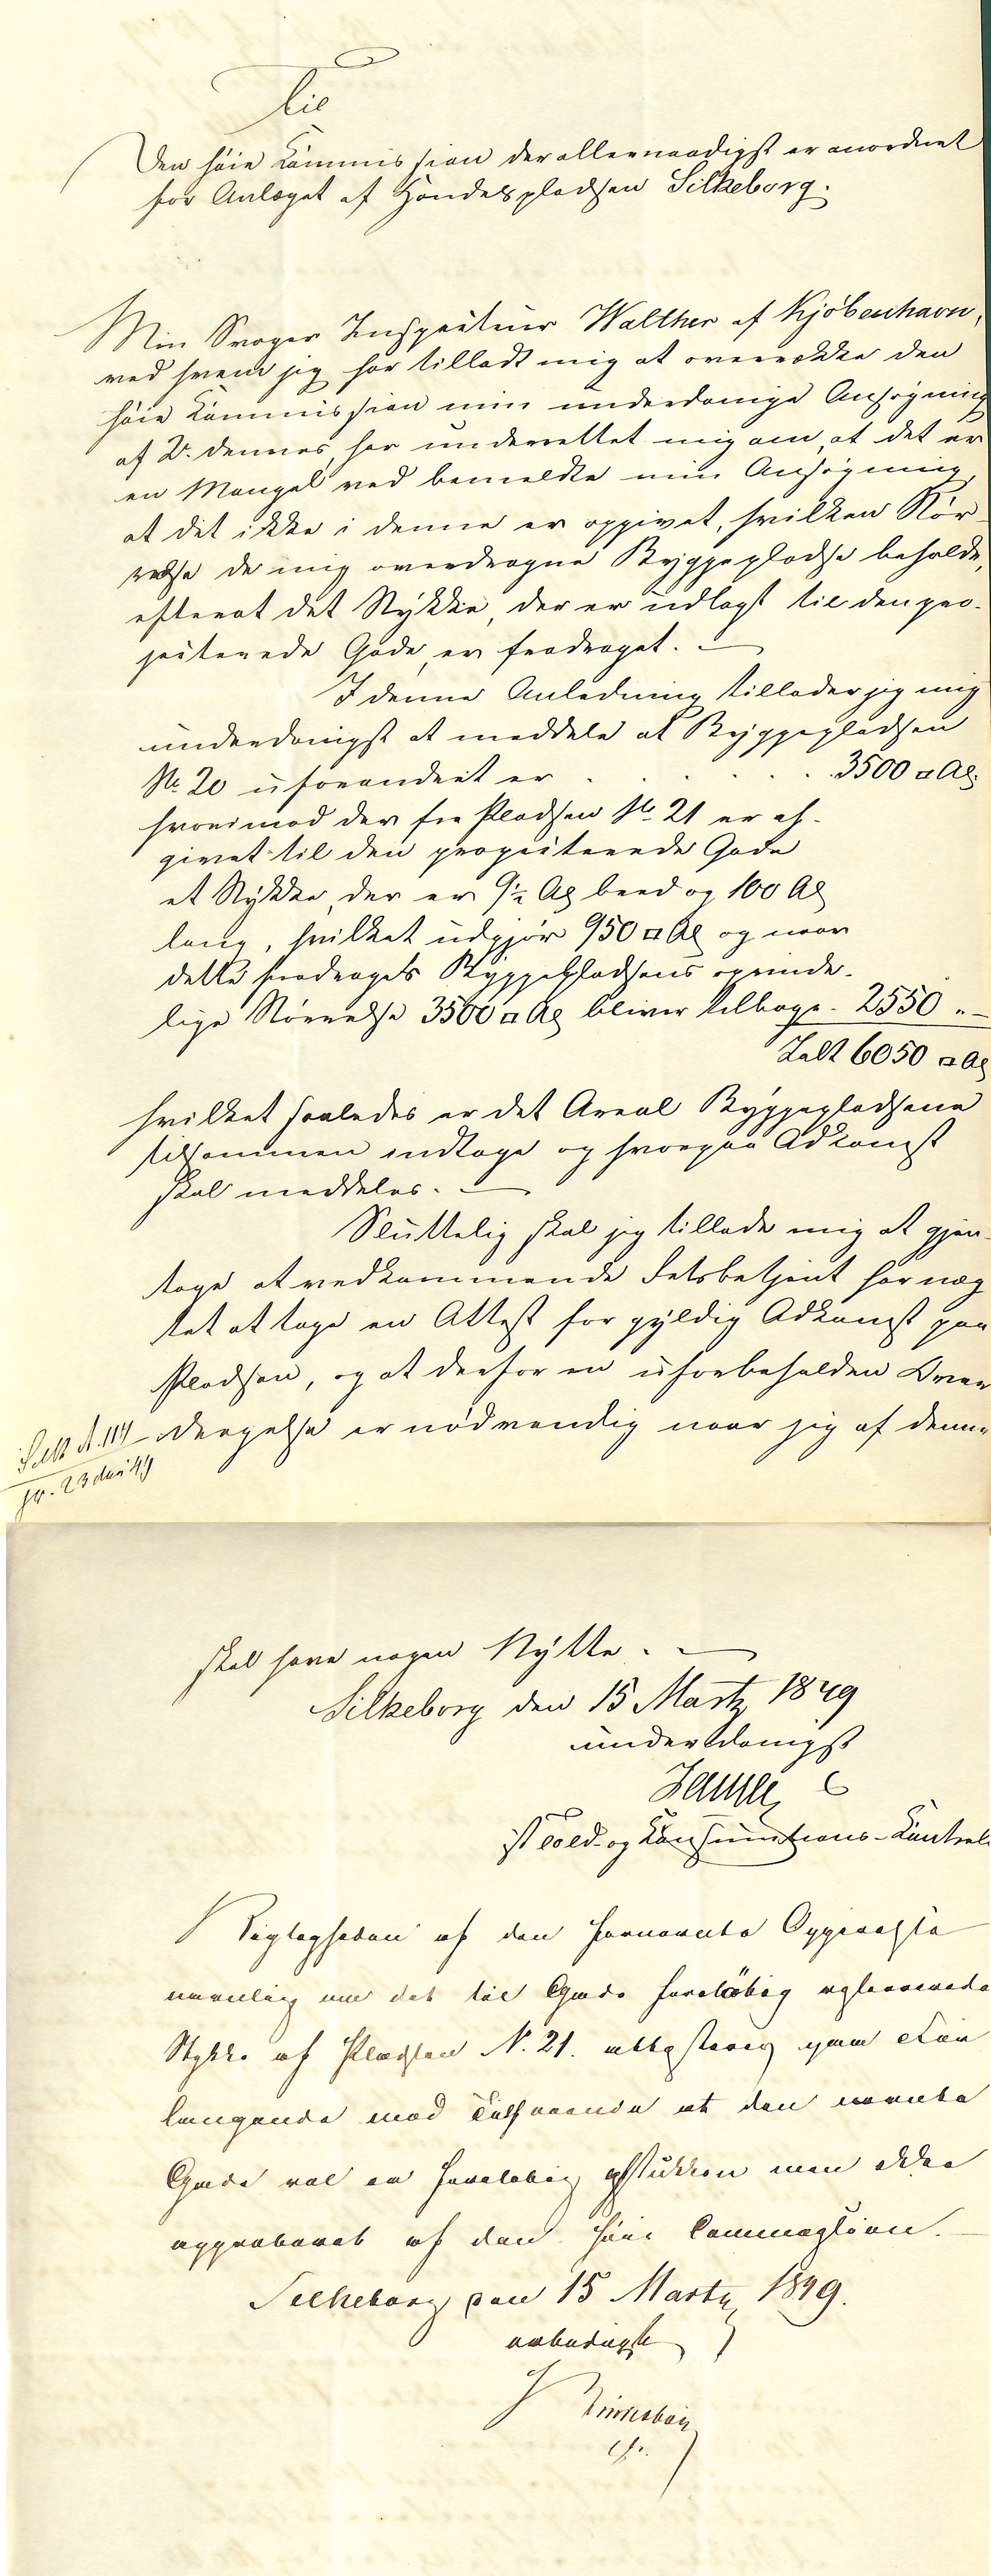 Til
Den høie Kommission der allernaadigst er anordnet
for Anlæget af Handelspladsen Silkeborg.
Min Svoger Inspecteur Walther af Kjöbenhavn,
ved hvem jeg har tilladt mig at overrække den
høie Kommission min underdanige Ansøgning
af 2. dennes, har underrettet mig om, at det er
en Mangel ved bemeldte min Ansøgning,
at det ikke i denne er opgivet, hvilken Stør-
relse de mig overdragne Byggepladse beholde,
efterat det Stykke, der er udlagt til den pro-
jecterede Gade, er fradraget. —
I denne Anledning tillader jeg mig
underdanigst at meddele at Byggepladsen
No. 20 uforandret er . . . . . . 3500 □ Al.
hvorimod der fra Pladsen No. 21 er af-
givet til den projecterede Gade
et Stykke, der er 9½ Al bred og 100 Al
lang, hvilket udgjør 950 □ Al og naar
dette fradrages Byggepladsens oprinde-
lige Størrelse 3500 □ Al bliver tilbage - 2550 " —
Ialt 6050 □ Al
hvilket saaledes er det Areal Byggepladsene
tilsammen indtage og hvorpaa Adkomst
skal meddeles. —
Sluttelig skal jeg tillade mig at gjen-
tage at vedkommende Retsbetjent har næg
tet at tage en Attest for gyldig Adkomst paa
Pladsen, og at derfor en uforbeholden Over
dragelse er nødvendig naar jeg af denne
Silk No. 114
pr. 23 49
skal have nogen Nytte. —
Silkeborg den 15 Marts 1849
underdanigst
Told- og Konsumtions-Kontrol
Rigtigheden af den fornævnte Opgivelse
nemlig om det til Gade foreløbig reserverede
Stykke af Pladsen N. 21. attesteres paa For
langende med Tilføiende at den nævnte
Gade vel er foreløbig afstukken men ikke
approberet af den høie Commission. —
Silkeborg den 15 Marts 1849.
ærbødigst